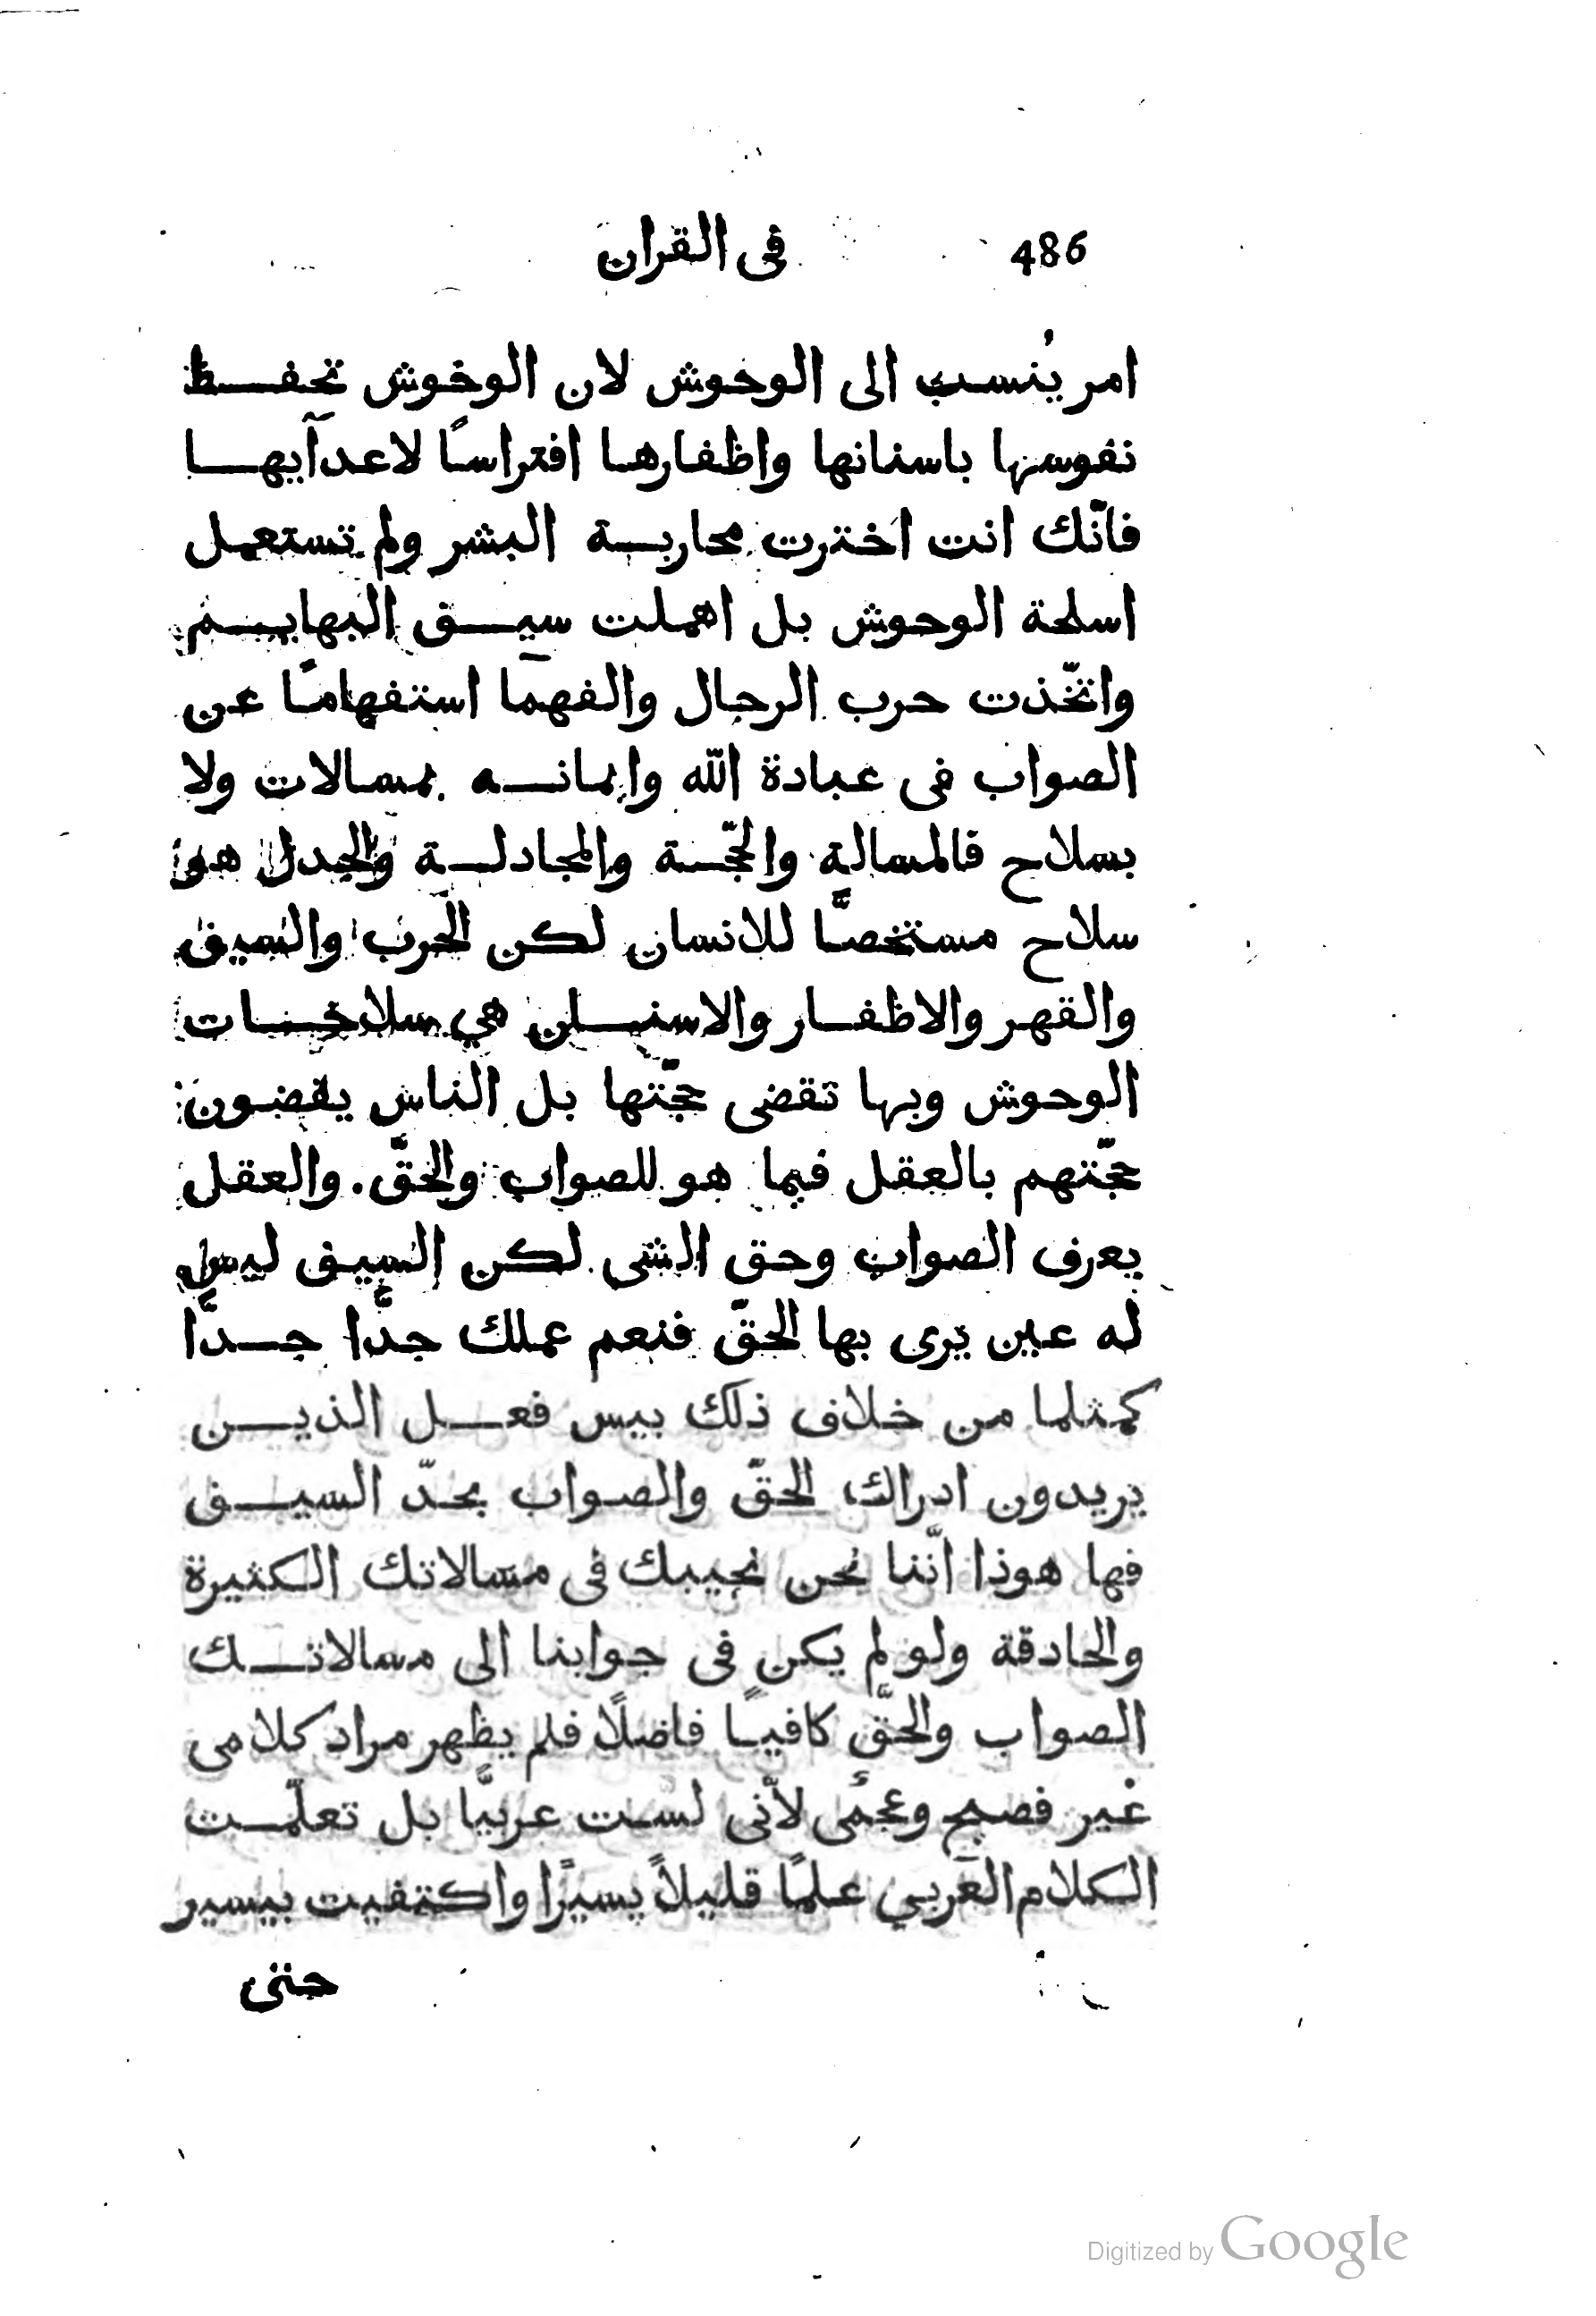 486 فى القران
امر يُنسب الى الوحوش لان الوحوش تحفظ
نفوسها باسنانها واظفارها افتراسًا لاعدآيها
فانّك انت اخترت محاربة البشر ولم تستعمل
اسلحة الوحوش بل اهملت سيق البهايم
واتّخذت حرب الرجال والفهما استفهامًا عن
الصواب فى عبادة الله وايمانه بمسالات ولا
بسلاح فالمسالة والحجّة والمجادلة والجدل هو
سلاح مستخصًّا للانسان لكن الحرب والسيف
والقهر والاظفار والاسنان هي سلاحات
الوحوش وبها تقضى حجّتها بل الناس يقضون
حجّتهم بالعقل فيما هو للصواب والحقّ. والعقل
يعرف الصواب وحق الشى لكن السيف ليس
له عين يرى بها الحقّ فنعم عملك جدًّا جدًّا
كمثلما من خلاف ذلك بيس فعل الذين
يريدون ادراك الحقّ والصواب بحدّ السيف
فها هوذا انّنا نحن نجيبك فى مسالاتك الكثيرة
والحادقة ولو لم يكن فى جوابنا الى مسالاتك
الصواب والحقّ كافيًا فاضلًا فلم يظهر مراد كلامى
غير فصيح وعجمى لانّى لست عربيًّا بل تعلّمت
الكلام العربي علمًا قليلًا يسيرًا واكتفيت بيسير
حتى
Digitized by Google